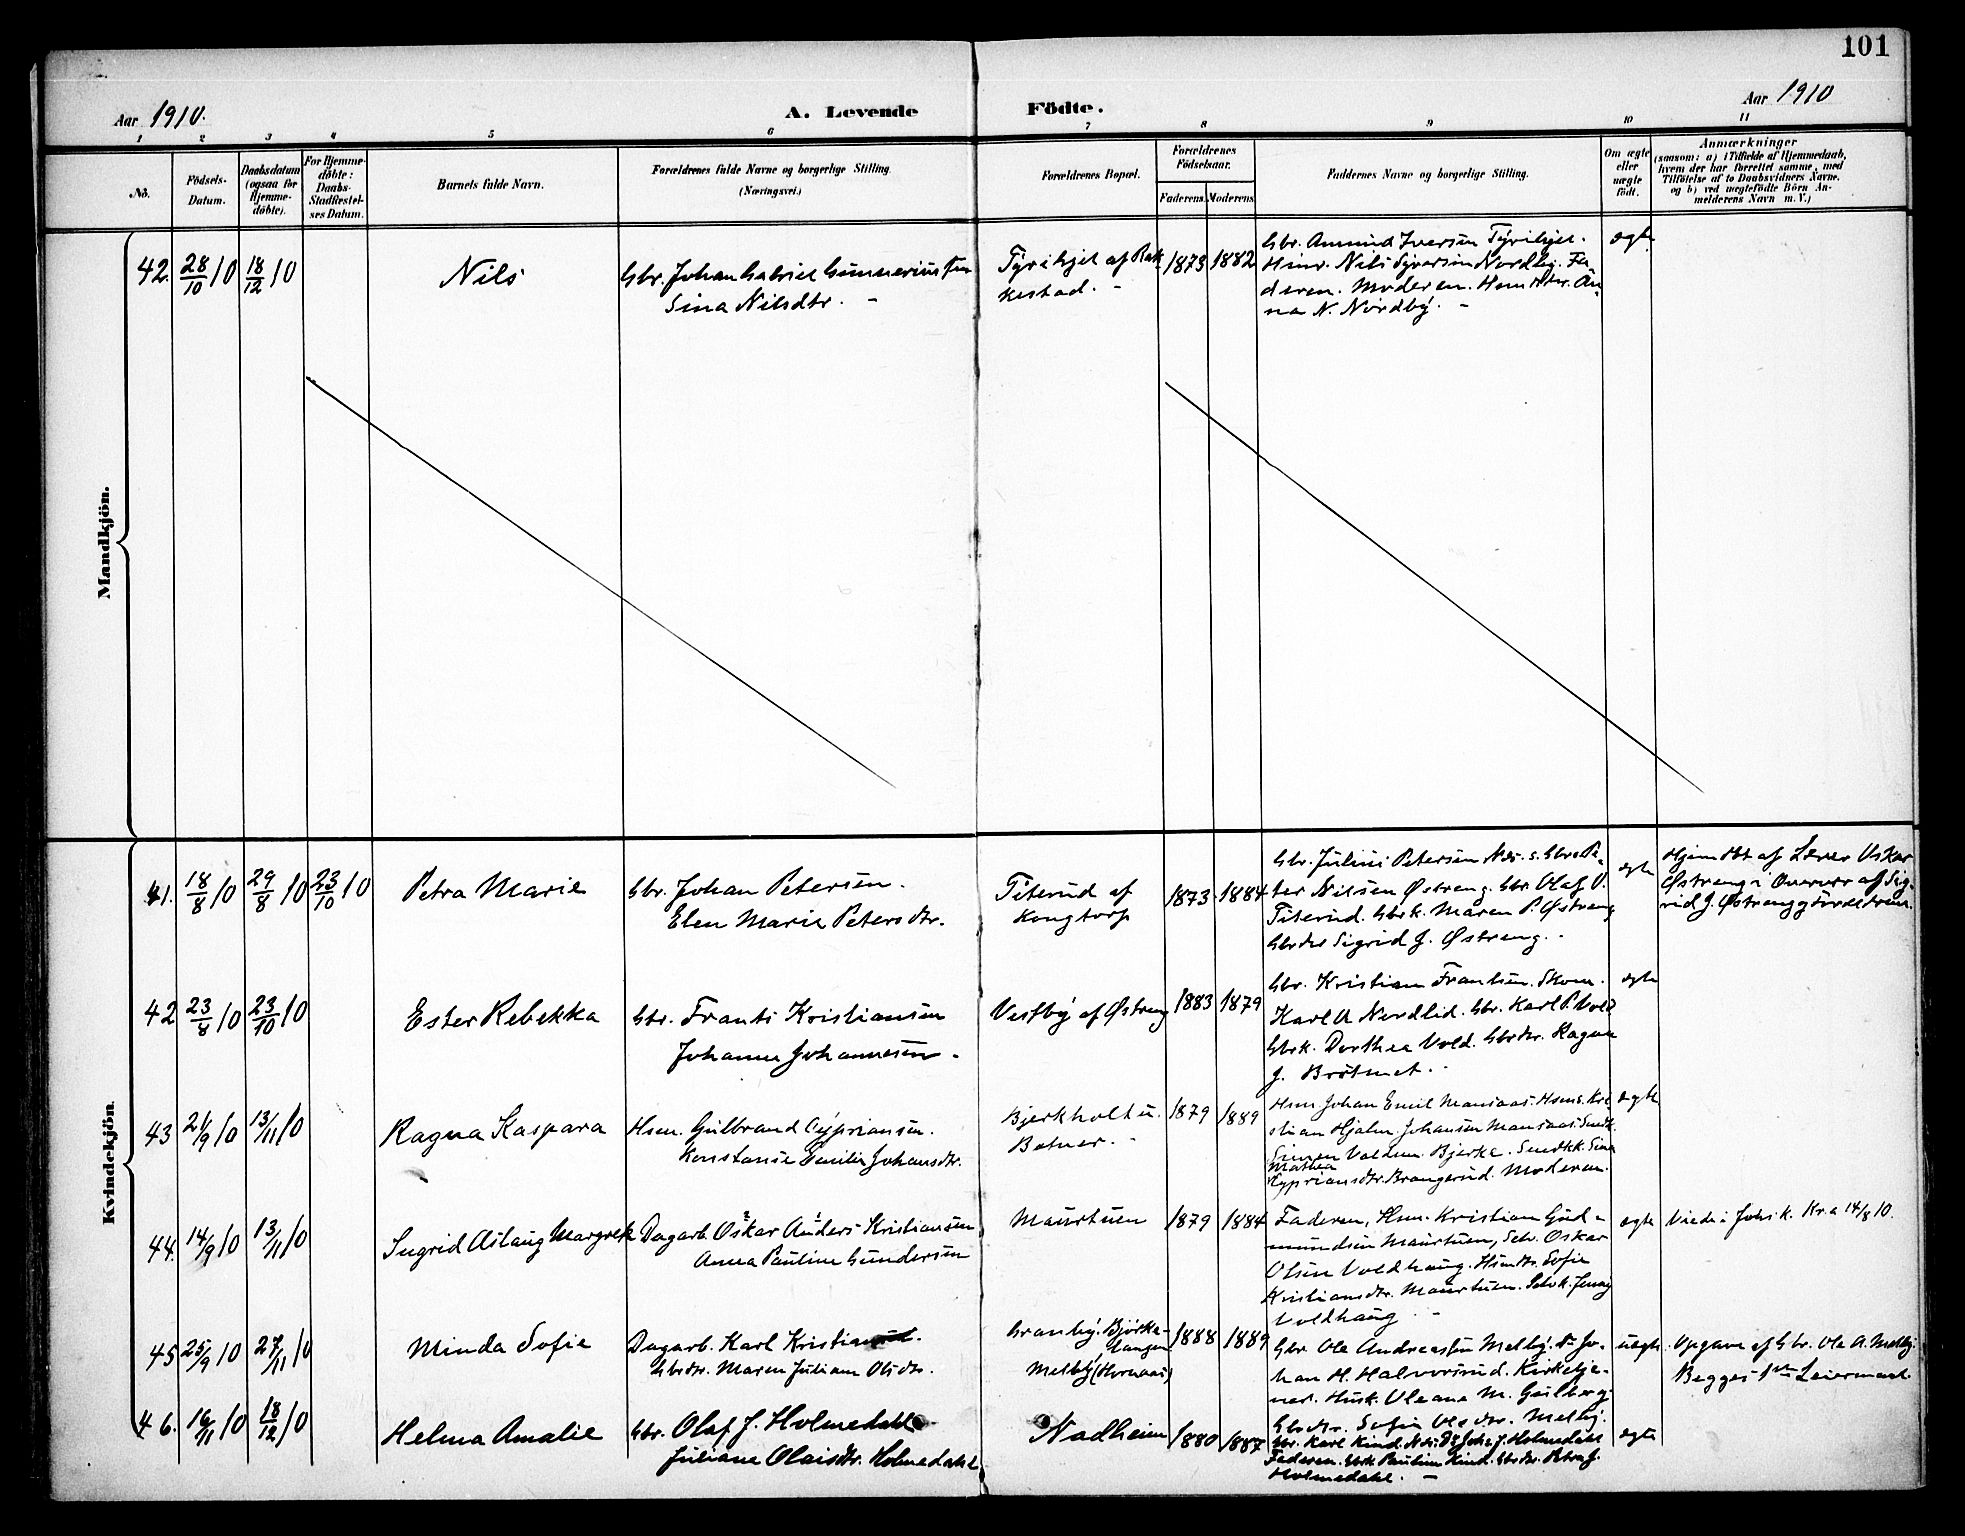 101
Aar 1910.
A. Levende Födte.
Aar 1910
1 2 3 4 5 6 7 8 9 10 11
No.
Födsels-Datum.
Daabsdatum (ogsaa for Hjemme-döbte).
For Hjemme-döbte: Daabs-Stadfæstel-ses Datum.
Barnets fulde Navn.
Forældrenes fulde Navne og borgerlige Stilling.
(Næringsvei.)
Forældrenes Bopæl.
Forældrenes Födselsaar.
Faderens. Moderens.
Faddernes Navne og borgerlige Stilling.
Om ægte eller uægte födt.
Anmærkninger
(saasom: a) i Tilfælde af Hjemmedaab,
hvem der har forrettet samme, med
Tilföielse af to Daabsvidners Navne,
og b) ved uægtefödte Börn An-
melderens Navn m. V.)
Mandkjön.
42. 28/10 10 18/12 10
Nils
Gbr. Johan Gabriel Gunnerius
Sina Nilsdtr. -
Tyrihjel af Rak-
kestad. -
1873 1882
Gbr. Amund Iversen Tyrihjel.
Nils Syversen Nordby. Fa-
deren. Moderen. An-
na N. Nordby. -
ægte
Kvindekjön.
41. 18/8 10 29/8 10 23/10 10
Petra Marie
Gbr. Johan Petersen.
Elen Marie Petersdtr.
Titerud af
Kongtorp
1873 1884
Gbr. Julius Petersen Næs. Pe-
ter Nilsen Østreng. Gbr. Olaf O.
Titerud. Gbrk. Maren P. Østreng
Gbrdtr Sigrid J. Østreng. -
ægte
Hjemdbt af Lærer Oskar
Østreng i Overvær af Sig-
rid J. Østreng
42 23/8 10 23/10 10
Ester Rebekka
Gbr. Frants Kristiansen
Johanne Johannesen -
Vestby af Østreng
1883 1879
Gbr. Kristian Frantsen. Skom.
Karl A Nordlid. Gbr. Karl P. Vold
Gbrk. Dorthea Vold. Gbrdtr. Ragna
J. Bråtnet. -
ægte
43 21/9 10 13/11 10
Ragna Kaspara
Hsm. Gulbrand Cypriansen.
Konstanse Emilie Johansdtr.
Bjerkholt u.
Botner. -
1879 1889
Hsm. Johan Emil Mansaas. Hsms. Kri-
stian Hjalm. Johansen Mansaas. Smdk.
Simen Valdem. Bjerke. Smedkk. Sina
Mathea
Cypriansdtr. Brangerud. Moderen.
ægte
44. 14/9 10 13/11 10
Ingrid Aslaug Margrete
Dagarb. Oskar Anders Kristiansen
Anna Pauline Gundersen
Maurtuen
1879 1884
Faderen, Hsm. Kristian Gud-
mundsen Maurtuen, Selv. Oskar
Olsen Voldhaug. Hsmdtr. Sofie
Kristiansdtr. Maurtuen. Selvk. Jenny
Voldhaug. -
ægte
Viede i Joh.s k. Kr.a 14/8 10.
45 25/9 10 27/11 10
Minda Sofie
Dagarb. Karl Kristiansen.
Gbrdtr. Maren Juliane Olsdtr.
Granby. Bjørke-
langen
Melby (Hornaas)
1888 1889
Gbr. Ole Andreassen Melby. Do Jo-
han H. Halvorsrud. Kirketje-
ner. Husk. Oleane M. Gulberg.
Gbrdtr. Sofie Olsdtr. Melby.
uægte
Opgave af Gbr. Ole A. Melby.
Begges 1ste Leiermaal.
46. 16/11 10 18/12 10
Helma Amalie
Gbr. Olaf J. Holmedahl
Juliane Olaisdtr. Holmedahl
Nadheim
1880 1887
Gbr. Karl Kind. Næs. Do Joh. J. Holmedahl
Faderen. Gbrk Pauline Kind. Gbrdtr. Petra J.
Holmedahl. -
ægte